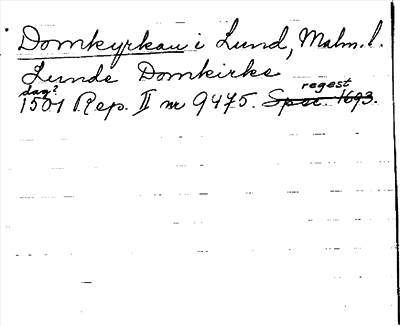 Domkyrkan i Lund, Malm. l.
Lunde Domkirke
dag? regest
1501 Rep. II nr 9475. Spec. 1693.